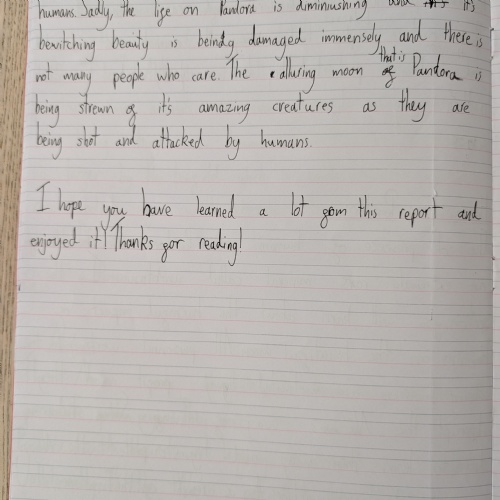 humans. Sadly, the life on Pandora is diminiushing and it's
bewitching beauty is being damaged immensely and there is
not many people who care. The alluring moon that is Pandora is
being strewn of it's amazing creatures as they are
being shot and attacked by humans.
I hope you have learned a lot from this report and
enjoyed it! Thanks for reading!